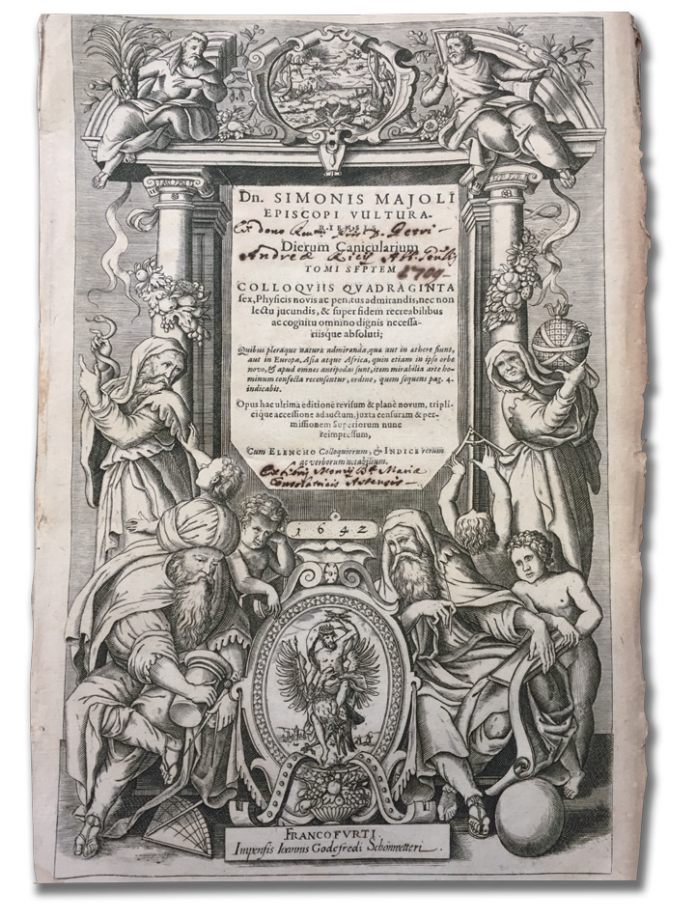 Dn. SIMONIS MAJOLI
EPISCOPI VULTURA-
Ex dono
Dierum Canicularium
Andreæ
TOMI SEPTEM
1709
COLLOQUIIS QUADRAGINTA
sex, Physicis novis ac penitus admirandis, nec non
lectu jucundis, & super fidem recreabilibus
ac cognitu omnino dignis necessa-
riisque absoluti;
Quibus pleraque naturæ admiranda, quæ aut in æthere fiunt,
aut in Europa, Asia atque Africa, quin etiam in ipso orbe
novo, & apud omnes antipodas sunt, item mirabilia arte ho-
minum confecta recensentur, ordine, quem sequens pag. 4.
indicabit.
Opus hac ultima editione revisum & planè novum, tripli-
cique accessione adauctum, juxta censuram & per-
missionem Superiorum nunc
reimpressum,
Cum ELENCHO Colloquiorum, & INDICE rerum
ac verborum notabilium.
Mariæ
Astensis
1642
FRANCOFURTI
Impensis Ioannis Godefredi Schönwetteri.